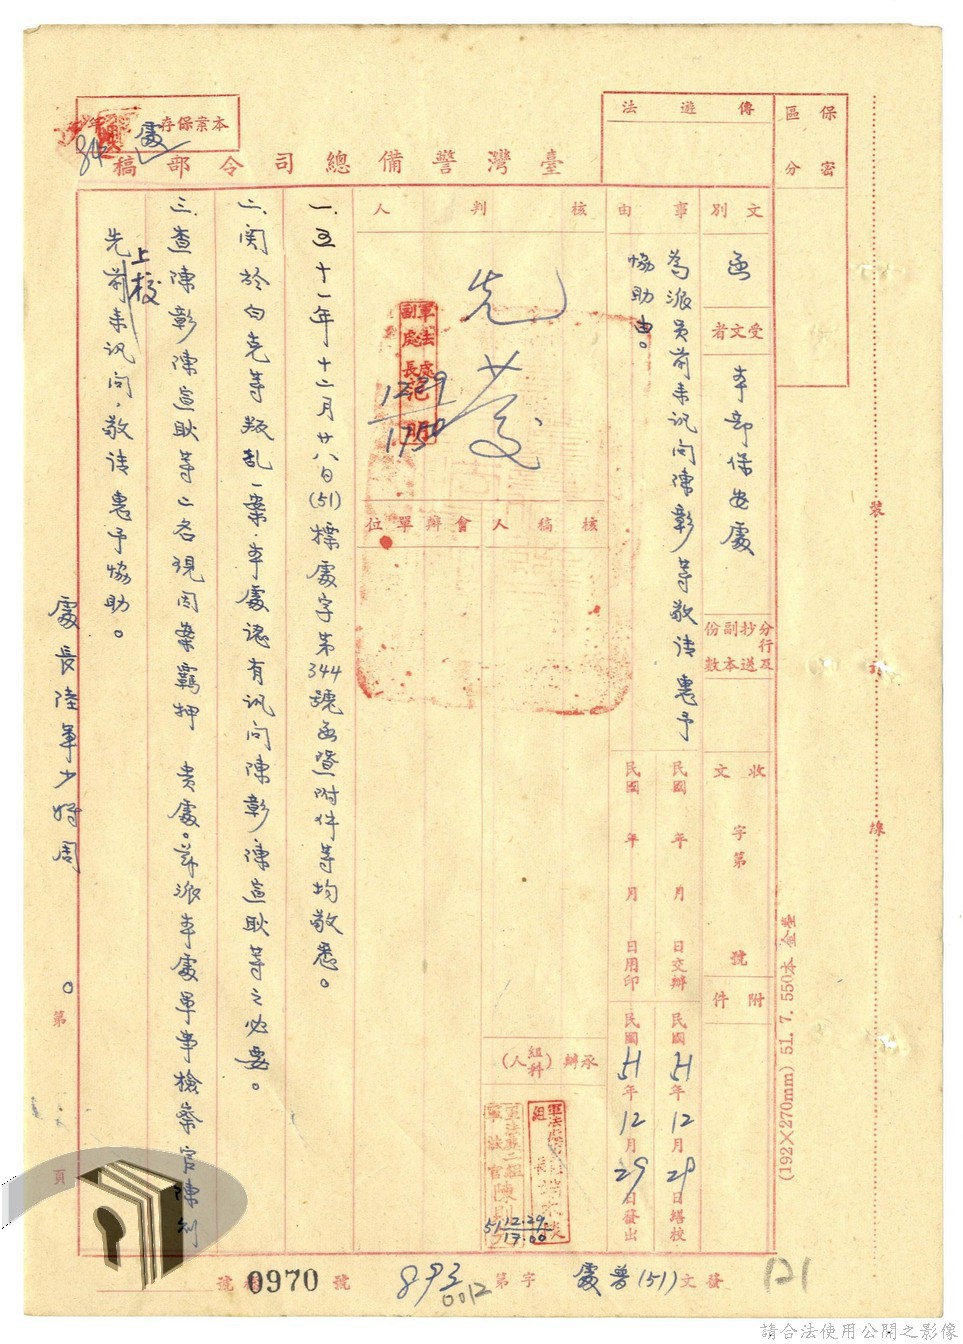 保密
區分
傳遞法
本案保存年
處
臺灣警備總司令部稿
文別
函
受文者
本部保安處
分行及抄送副本份數
收文
字第
號
附件
事由
為派員前來訊問陳彰等敬請惠予
協助由。
民國 年 月 日交辦
民國 年 月 日用印
民國51年12月28日繕校
民國51年12月29日發出
核判人
先發
軍法處
副處長
1229
1750
核稿人
會辦單位
承辦(組科人)
軍法處二組
軍法官陳
51 12.29.
17:00
一.五十一年十二月廿八日(51)標處字第344號函暨附件等均敬悉。
二.関於白克等叛乱一案,本處認有訊问陳彰陳宣耿等之必要。
三.查陳彰陳宣耿等二名現因案羈押 貴處。茲派本處軍事檢察官陳
先上校前來訊问,敬請惠予協助。
處長陸軍少將周 。
第
頁
裝
訂
線
(192×270mm) 51. 7. 550本
發文
(51)普處
字第
893
0012
號
0970
號
121
請合法使用公開之影像